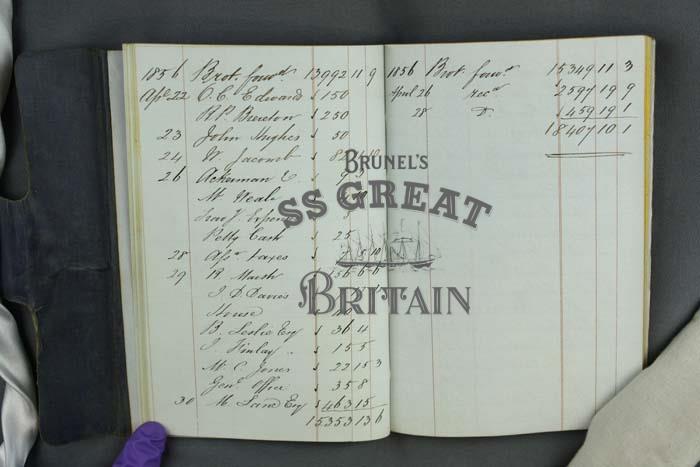 1856 Brot. forwd. 13992 11 9
Apl. 22 O. C. Edward 150
R. P. Brereton 250
23 John Hughes 50
24 W. Jacomb
26 Ackerman
Mr Neale
Trav. Expenses
Petty Cash 25
28 Taxes
29 R. Marsh
J. D. Davies
House
B. Leslie Esq 36 4
J. Finlay 15 5
W. C. Jones 22 15 3
Genl. Office 35 8
30 Esq 463 15
15353 13 6
1856 Brot. forwd. 15349 11 3
April 26 recd 2597 19 9
28 Do. 459 19 1
18407 10 1
BRUNEL'S
SS GREAT
BRITAIN